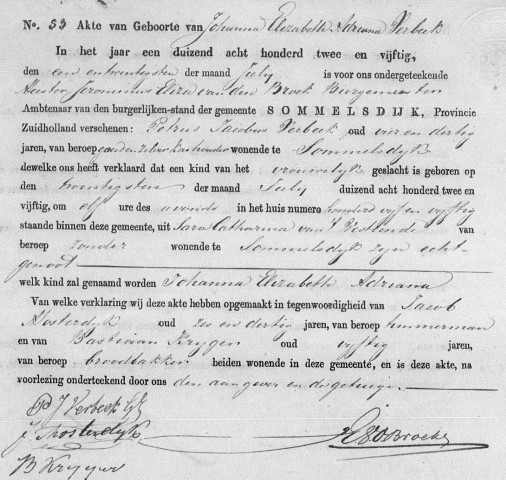 No. 53 Akte van Geboorte van Johanna Elizabeth Adriana Verbeek
In het jaar een duizend acht honderd twee en vijftig,
den een en twintigsten der maand July is voor ons ondergeteekende
van den Broek Burgemeester
Ambtenaar van den burgerlijken-stand der gemeente SOMMELSDIJK, Provincie
Zuidholland verschenen: Petrus Jacobus Verbeek oud vier en dertig
jaren, van beroep goud en zilver kashouder wonende te Sommelsdyk
dewelke ons heeft verklaard dat een kind van het vrouwelyk geslacht is geboren op
den twintigsten der maand July duizend acht honderd twee en
vijftig, om elf ure des avonds in het huis numero honderd vyf en vyftig
staande binnen deze gemeente, uit Sara Catharina van 't van
beroep zonder wonende te Sommelsdyk zyn echt-
genoot
welk kind zal genaamd worden Johanna Elizabeth Adriana
Van welke verklaring wij deze akte hebben opgemaakt in tegenwoordigheid van Jacob
oud zes en dertig jaren, van beroep timmerman
en van Bastiaan Kryger oud vyftig jaren,
van beroep broodbakker beiden wonende in deze gemeente, en is deze akte, na
voorlezing onderteekend door ons den aangever en de getuigen.
P J Verbeek
B Kryger